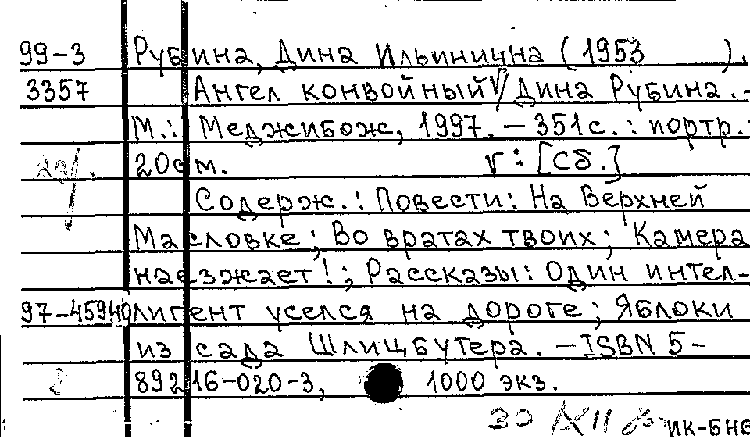 99-3 Рубина, Дина Ильинична (1953 ).
3357 Ангел конвойный / Дина Рубина. -
М.: Меджибож, 1997. - 351с. : портр.;
20см. г: [Сб.]
Содерж.: Повести: На Верхней
Масловке; Во вратах твоих; Камера
наезжает!; Рассказы: Один интел-
97-45940 лигент уселся на дороге; Яблоки
из сада Шлицбутера. - ISBN 5-
89216-020-3, 1000 экз.
ИК-БНБ